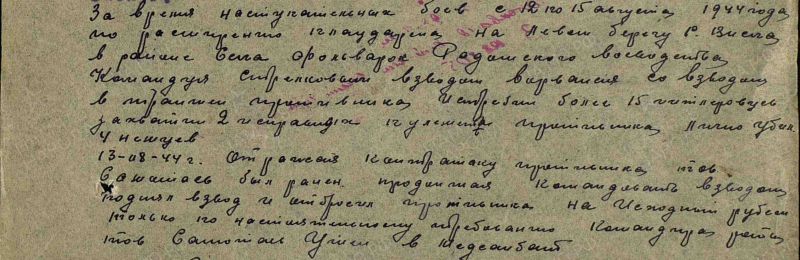 За время наступательных боев с 12 по 15 августа 1944 года
по расширению плацдарма на левом берегу р. Висла
в районе села Фольварок Радомского воеводства
Командуя стрелковым взводом ворвался со взводом
в траншеи противника истребил более 15 гитлеровцев
захватил 2 исправных пулемета противника лично убил
4 немцев
13-08-44 г. Отражая контратаку противника тов
был ранен продолжая командовать взводом
поднял взвод и отбросил противника на исходный рубеж
только по настоятельному требованию командира роты
тов ушел в медсанбат